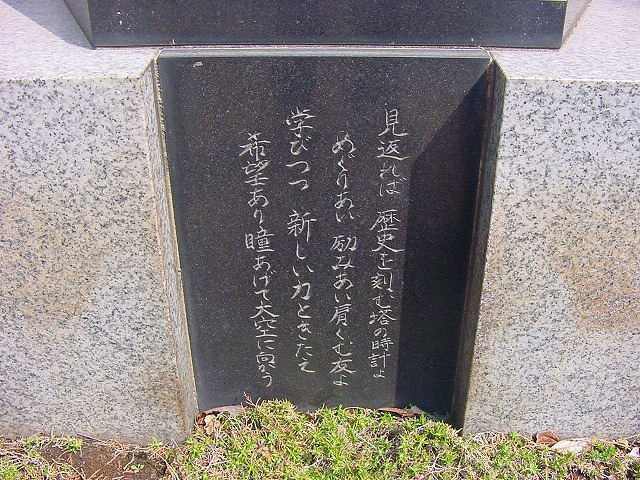 見返れば 歴史を刻む塔の時計よ
めぐりあい 励みあい肩くむ友よ
学びつつ 新しい力ときたえ
希望あり 瞳あげて大空に向かう